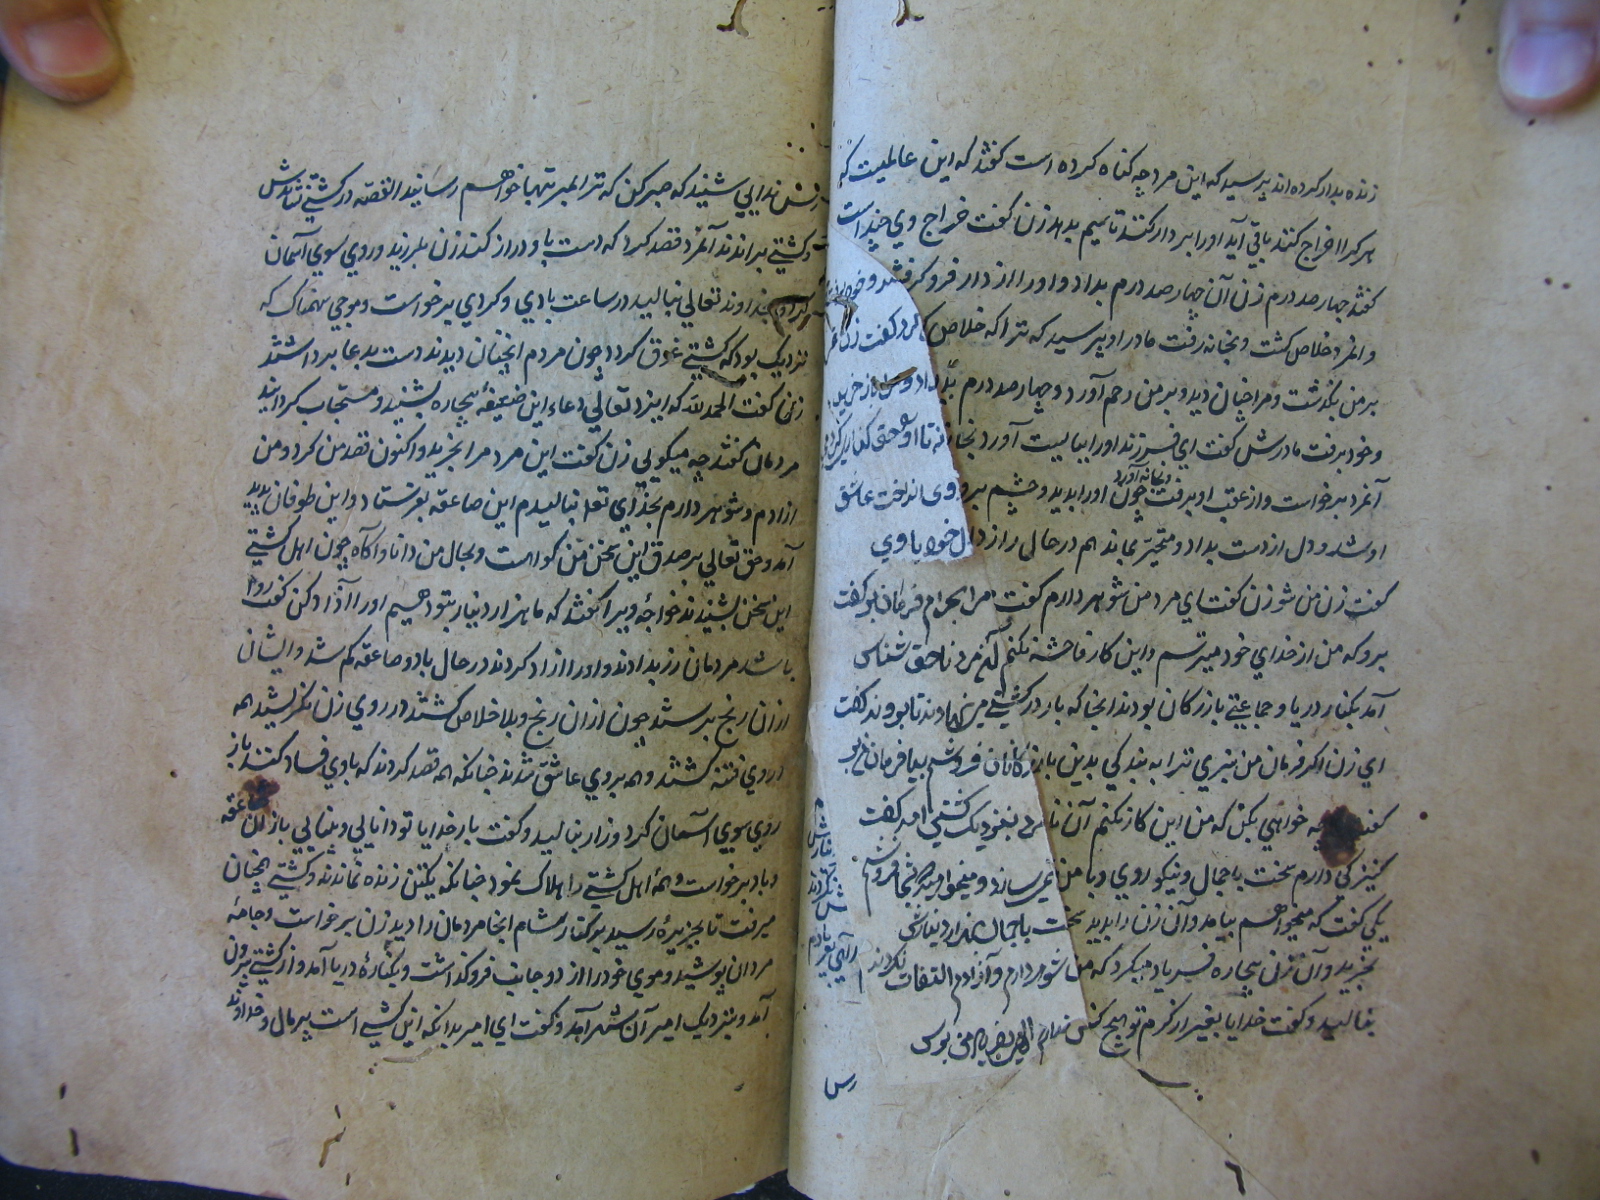 زنده بدار کرده اند پرسید که این مرد چه کناه کرده است کفتند که این عاملیت که
هر کرا اخراج کنند باقی آید او را بر دار کنند تا سیم بدهد زن کفت خراج وی چند است
کفتند چهار صد درم زن آن چهار صد درم بداد و او را از دار فرو کرفتند و خود
و انمرد خلاص کشت و بخانه رفت مادر او پرسید که ترا که خلاص کرد کفت زنی
بر من بکذشت و مرا چنان دید و بر من رحم آورد و چهار صد درم بداد و مرا باز خرید
و خود برفت مادرش کفت ای فرزند او را ببایست آورد بخانه تا او حق
آنمرد برخاست و از عقب او برفت چون او را بدید و چشم بر وی انداخت عاشق
و بخانه آورد
او شد و دل از دست بداد و متحیر بماند هم در حال راز دل خود با وی
کفت زن من شو زن کفت ای مرد من شوهر دارم کفت مرا بحرام فرمان بر کفت
برو که من از خدای خود میترسم و این کار فاحشه نکنم آن مرد ناحق شناس
آمد بکنار دریا و جماعتی بازرکان بودند انجا که بار در کشتی می نهادند تا بروند کفت
ای زن اکر فرمان من نبری ترا به بندکی بدین بازرکانان فروشم بیا فرمان بر
کفت چه خواهی بکن که من این کار نکنم آن نامرد بنزدیک کشتی امد کفت
کنیزکی دارم سخت باجمال و نیکو روی و با من نمی سازد و میخواهم که بفروشم
یکی کفت که میخواهم بیامد و آن زن را بدید سخت باجمال بهزار دینارش
بخرید و آن زن بیچاره فریاد میکرد که من شوهر دارم و آزادم التفات نکردند
بنالید و کفت خدایا بغیر از کرم تو هیچ کس ندارم
رس
ندایی شنید که صبر کن که ترا بمرتبها خواهم رسانید القصه در کشتی نشاندش
و کشتی براندند آنمرد قصد کرد که دست باو دراز کند زن بلرزید و روی سوی آسمان
کرد و بخداوند تعالی بنالید در ساعت بادی و کردی برخواست و موجی سهمناک که
نزدیک بود که کشتی غرق کردد چون مردم انچنان دیدند دست بدعا برداشتند
زن کفت الحمد لله که ایزد تعالی دعاء این ضعیفهٔ بیچاره بشنید و مستجاب کردانید
مردمان کفتند چه میکویی زن کفت این مرد مرا بخرید و اکنون قصد من کرد و من
ازادم و شوهر دارم بخدای تعا بنالیدم این صاعقه بفرستاد و این طوفان پدید
آمد و حق تعالی بر صدق این سخن من کواست و بحال من دانا و آکاه چون اهل کشتی
این سخن بشنیدند خواجه ویرا کفتند که ما هزار دینار بتو دهیم او را آزاد کن کفت روا
باشد مردمان زر بدادند و او را ازاد کردند در حال باد و صاعقه کم شد و ایشان
ازان رنج برستند چون ازان رنج و بلا خلاص کشتند در روی زن نکریستند همه
در وی فتنه کشتند و همه بر وی عاشق شدند چنانکه همه قصد کردند که با وی فساد کنند باز
روی سوی آسمان کرد و زار بنالید و کفت بار خدایا تو دانایی و بینایی باز ان صاعقه
و باد برخواست و همهٔ اهل کشتی را هلاک نمود چنانکه یکتن زنده نماندند و کشتی همچنان
میرفت تا بجزیرهٔ رسید بر کنار شام انجا مردمان را دید زن برخواست و جامهٔ
مردان پوشید و موی خود را از دو جانب فرو کذاشت و بکنارهٔ دریا آمد و از کشتی بیرون
آمد و بنزدیک امیر آن شهر آمد و کفت ای امیر بدانکه این کشتی است پر مال و خداوند